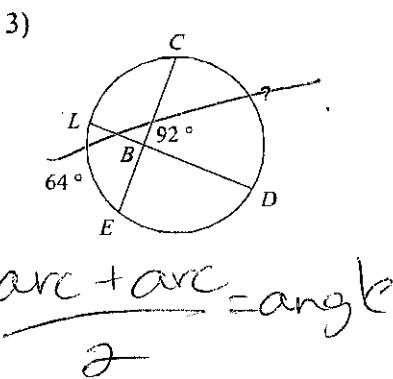 3)
C
?
L
92°
B
64°
D
E
arc + arc
2
=angle